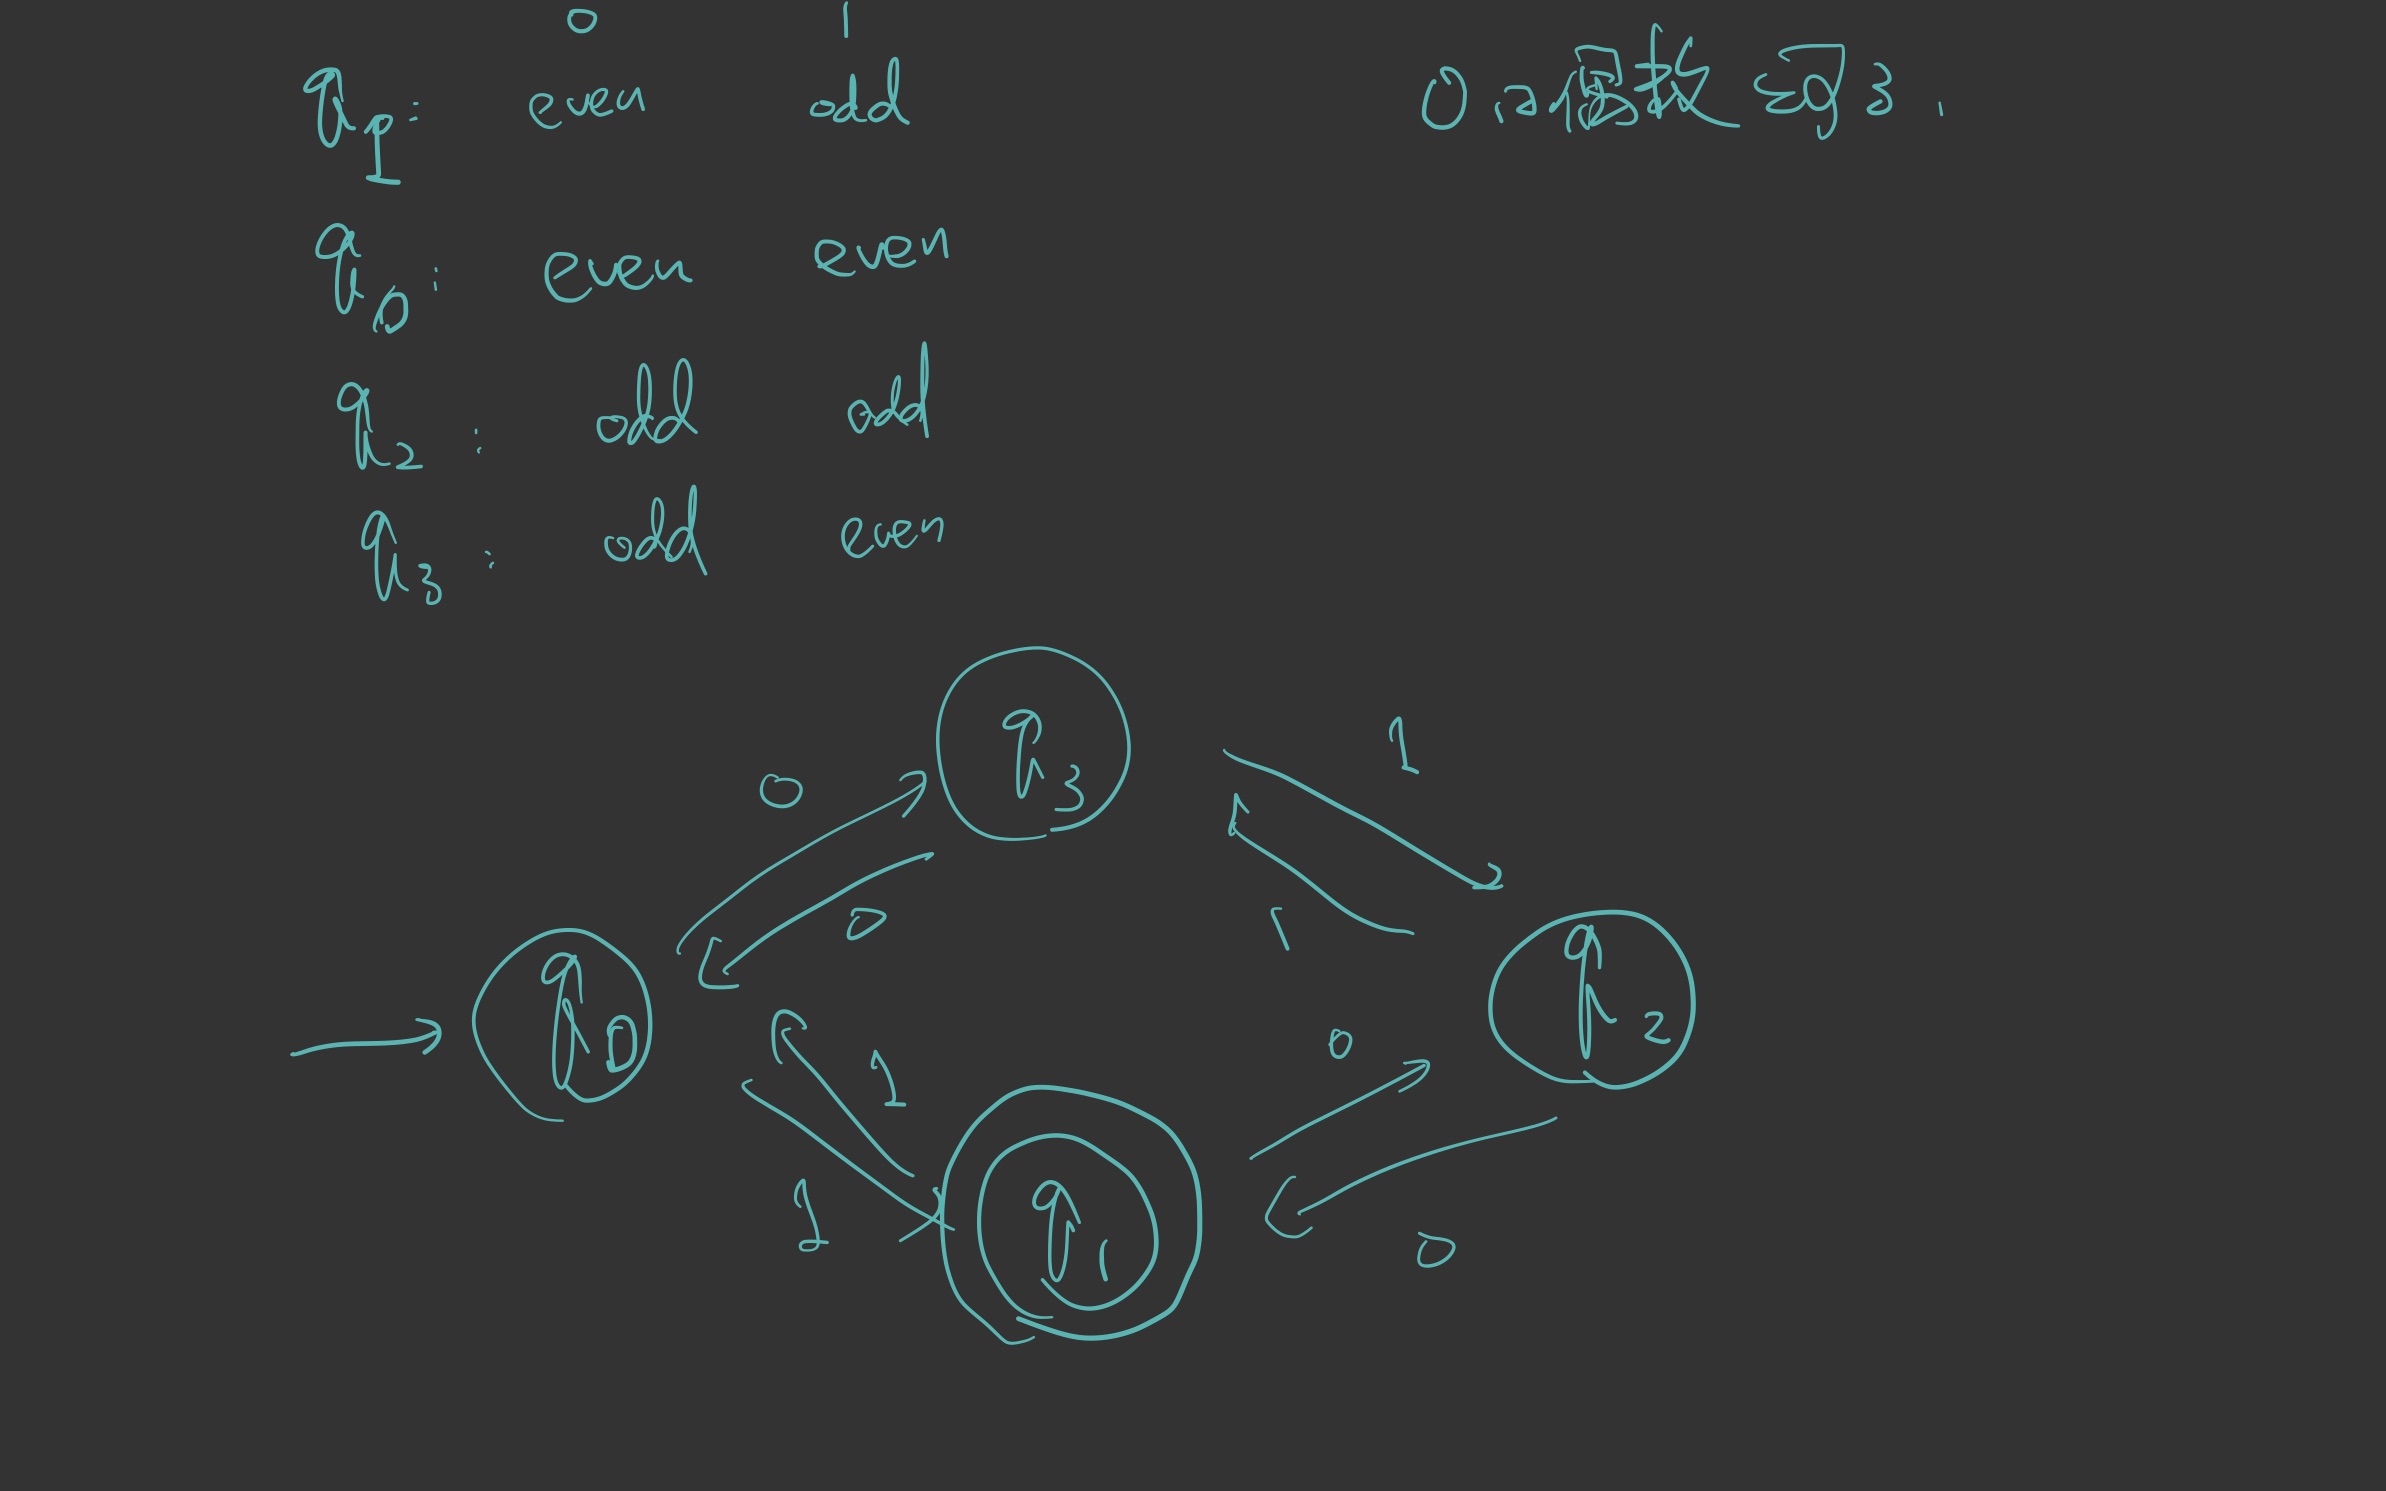 0 1
q1: even odd
0是偶数可3.
q0: even even
q2: odd odd
q3: odd even
q3
1
0
0
1
q0
q2
1
0
1
q1
0